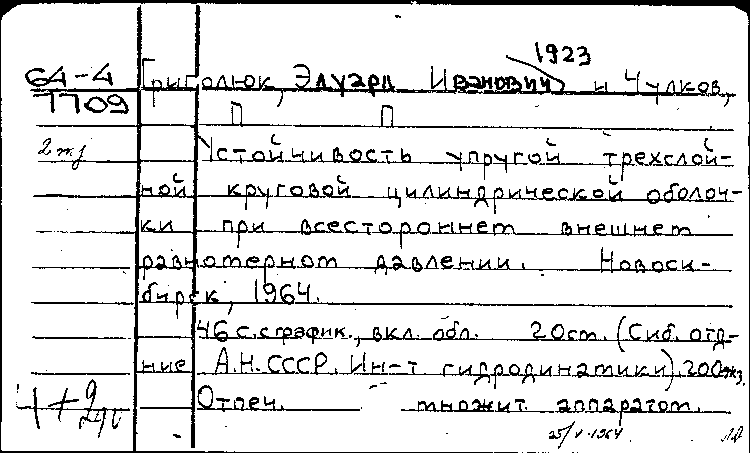 1923
64-4 Григолюк, Эдуард Иванович и Чулков,
7709 П П
2 экз Устойчивость упругой трехслой-
ной круговой цилиндрической оболоч-
ки при всестороннем внешнем
равномерном давлении. Новоси-
бирск, 1964.
46 с. с график., вкл. обл. 20 см. (Сиб. отд-
ние А.Н. СССР. Ин-т гидродинамики). 200 экз.
Отпеч. множит. аппаратом.
25/V-1964